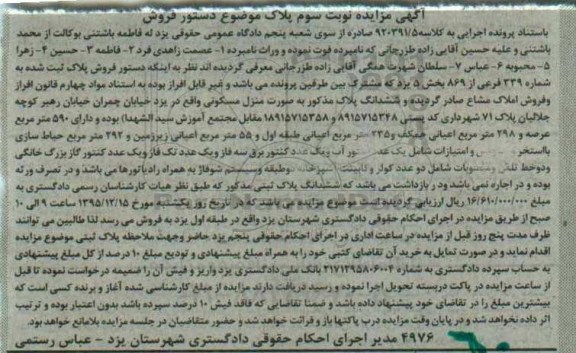 آگهی مزایده نوبت سوم پلاک موضوع دستور فروش
باستناد پرونده اجرایی به کلاسه ۹۲۰۳۹۱/۵ صادره از سوی شعبه پنجم دادگاه عمومی حقوقی یزد له فاطمه باشتنی بوکالت از محمد
باشتنی و علیه حسین آقایی زاده طزرجانی که نامبرده فوت نموده و وراث نامبرده ۱- عصمت زاهدی فرد ۲- فاطمه ۳- حسین ۴- زهرا
۵- محبوبه ۶- عباس ۷- سلطان شهرت همگی آقایی زاده طزرجانی معرفی گردیده اند نظر به اینکه دستور فروش پلاک ثبت شده به
شماره ۳۳۹ فرعی از ۸۶۹ بخش ۵ یزد که مشترک بین طرفین پرونده می باشد و غیر قابل افراز بوده به استناد مواد چهارم قانون افراز
وفروش املاک مشاع صادر گردیده و ششدانگ پلاک مذکور به صورت منزل مسکونی واقع در یزد خیابان چمران خیابان رهبر کوچه
جلالیان پلاک ۷۱ شهرداری کد پستی ۸۹۱۵۷۱۵۳۴۸ و ۱۸۹۱۵۷۱۵۳۵۸ مقابل مجتمع آموزش سید الشهدا) بوده و دارای ۵۹۰ متر مربع
عرصه و ۲۹۸ متر مربع اعیانی همکف و ۲۳۵ متر مربع اعیانی طبقه اول و ۵۵ متر مربع اعیانی زیرزمین و ۲۹۲ متر مربع حیاط سازی
بااستخر و امتیازات شامل یک عدد آب ویک عدد کنتور برق سه فاز ویک عدد تک فاز ویک عدد کنتور گاز بزرگ خانگی
ودوخط تلفن ومنصوبات شامل دو عدد کولر و کابینت وسیستم شوفاژ به همراه رادیاتورها می باشد و در تصرف ورثه
بوده و در اجاره نمی باشد ودر بازداشت می باشد که ششدانگ پلاک ثبتی مذکور که طبق نظر هیات کارشناسان رسمی دادگستری به
مبلغ ۱۶/۶۱۰/۰۰۰/۰۰۰ ریال ارزیابی گردیده است موضوع مزایده می باشد که در تاریخ روز یکشنبه مورخ ۱۳۹۵/۱۲/۱۵ ساعت ۹ الی ۱۰
صبح از طریق مزایده در اجرای احکام حقوقی دادگستری شهرستان یزد واقع در طبقه اول یزد به فروش می رسد لذا طالبین می توانند
ظرف مدت پنج روز قبل از مزایده در ساعت اداری در اجرای احکام حقوقی پنجم یزد حاضر وجهت ملاحظه پلاک ثبتی موضوع مزایده
اقدام نماید و در صورت تمایل به خرید آن تقاضای کتبی خود را به همراه مبلغ پیشنهادی و تودیع مبلغ ۱۰ درصد از کل مبلغ پیشنهادی
به حساب سپرده دادگستری به شماره ۲۱۷۱۲۹۵۸۰۶۰۰۴ بانک ملی دادگستری یزد واریز و فیش آن را ضمیمه درخواست نموده تا قبل
از ساعت مزایده در پاکت دربسته تحویل اجرا نموده و رسید دریافت دارند مزایده از مبلغ کارشناسی شده آغاز و برنده کسی است که
بیشترین مبلغ را در تقاضای خود پیشنهاد داده باشد و ضمنا تقاضایی که فاقد فیش ۱۰ درصد سپرده باشد بدون اعتبار بوده و ترتیب
اثر داده نخواهد شد و در پایان وقت مزایده درب پاکتها باز و قرائت خواهد شد و حضور متقاضیان در جلسه مزایده بلامانع خواهد بود.
۴۹۷۶ مدیر اجرای احکام حقوقی دادگستری شهرستان یزد - عباس رستمی